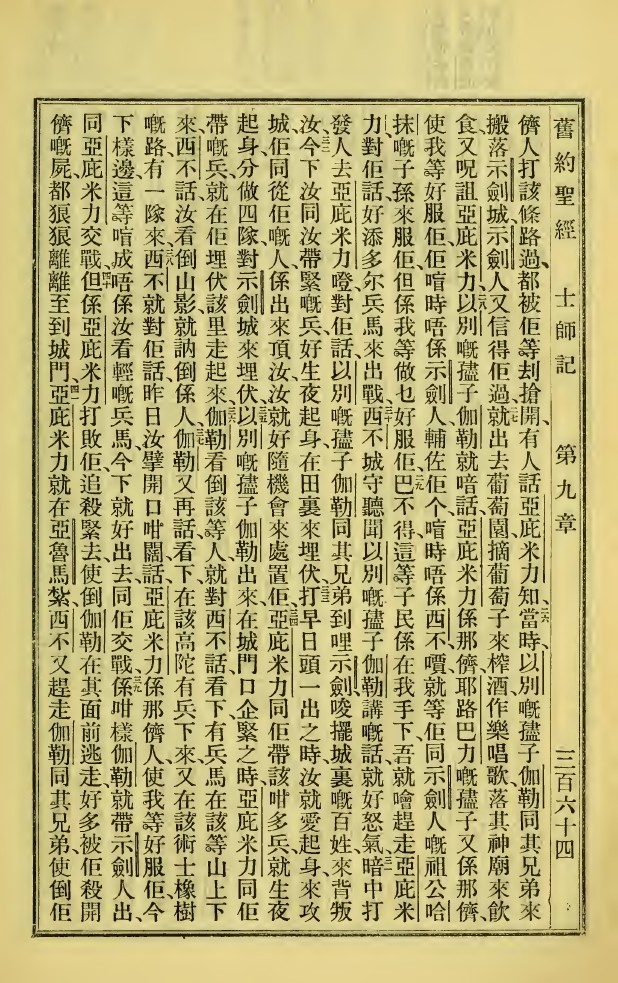 舊約聖經 士師記 第九章 三百六十四
儕人打該條路過、都被佢等刦搶開、有人話亞庇米力知當時、二六以別嘅𡥧子伽勒同其兄弟來
搬落示劍城、示劍人又信得佢過、二七就出去葡萄園摘葡萄子來榨酒作樂唱歌、落其神廟來飲
食、又呪詛亞庇米力、二八以別嘅𡥧子伽勒就喑話、亞庇米力係那儕、耶路巴力嘅𡥧子又係那儕、
使我等好服佢、佢喑時唔係示劍人輔佐佢个喑時唔係西不嚿就等佢同示劍人嘅祖公哈
抹嘅子孫來服佢、但係我等做乜好服佢、二九巴不得這等子民係在我手下、吾就噲趕走亞庇米
力、對佢話、好添多尔兵馬來出戰、三十西不城守聽聞以別嘅𡥧子伽勒講嘅話、就好怒氣、三一暗中打
發人去亞庇米力嶝、對佢話、以別嘅𡥧子伽勒同其兄弟到哩示劍唆擺城裏嘅百姓來背叛
汝、三二今下汝同汝帶緊嘅兵好生夜起身在田裏來埋伏、三三打早日頭一出之時、汝就愛起身來攻
城、佢同從佢嘅人係出來頂汝、汝就好隨機會來處置佢、三四亞庇米力同佢帶該咁多兵、就生夜
起身分做四隊、對示劍城來埋伏、三五以別嘅𡥧子伽勒出來在城門口企緊之時、亞庇米力同佢
帶嘅兵、就在佢埋伏該里走起來、三六伽勒看倒該等人、就對西不話、看下有兵馬在該等山上下
來、西不話、汝看倒山影就訥倒係人、三七伽勒又再話、看下在該高陀有兵下來、又在該術士橡樹
嘅路有一隊來、三八西不就對佢話、昨日汝擘開口咁闊話、亞庇米力係那儕人、使我等好服佢、今
下樣邊、這等喑成唔係汝看輕嘅兵馬、今下就好出去、同佢交戰、三九係咁樣伽勒就帶示劍人出、
同亞庇米力交戰、四十但係亞庇米力打敗佢、追殺緊去、使倒伽勒在其面前逃走、好多被佢殺開
儕嘅屍、都狠狠離離至到城門、四一亞庇米力就在亞魯馬紮、西不又趕走伽勒同其兄弟、使倒佢